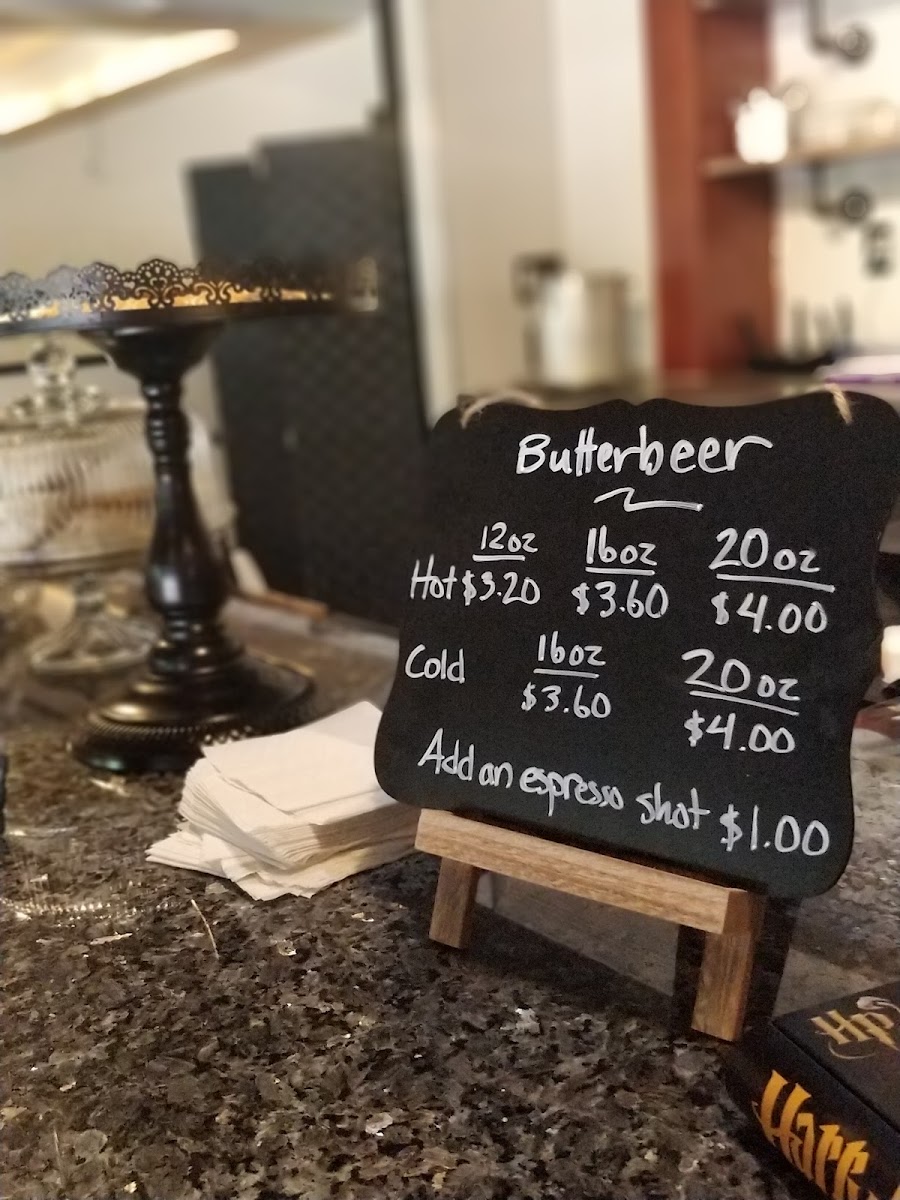 Butterbeer
12oz 16oz 20oz
Hot $3.20 $3.60 $4.00
Cold 16oz 20oz
$3.60 $4.00
Add an espresso shot $1.00
HP
Harr